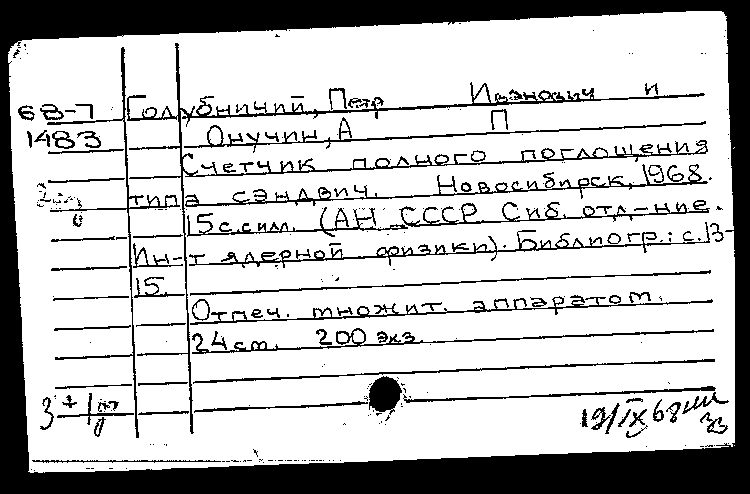 68-7 Голубничий, Петр Иванович и
1483 Онучин, А П
Счетчик полного поглощения
типа сэндвич. Новосибирск, 1968.
15 с. с илл. (АН СССР. Сиб. отд-ние.
Ин-т ядерной физики). Библиогр.: с. 13-
15.
Отпеч. множит. аппаратом.
24 см. 200 экз.
3 + 1
19/IX 68